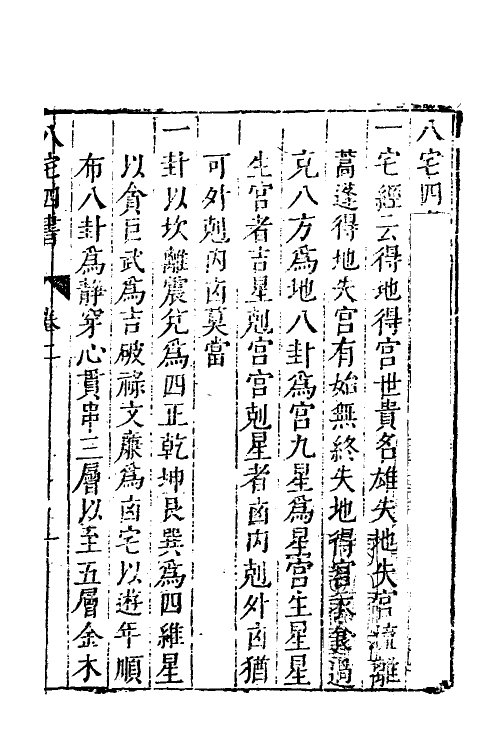 八宅四
一宅經云得地得宮世貴名雄失地失宮流離
蒿蓬得地失宮有始無終失地得宮衣食過
克八方爲地八卦爲宮九星爲星宮生星星
生宮者吉星剋宮宮剋星者凶內剋外凶猶
可外剋內凶莫當
一卦以坎離震兌爲四正乾坤艮巽爲四維星
以貪巨武爲吉破祿文廉爲凶宅以遊年順
布八卦爲靜穿心貫串三層以至五層金木
八宅四書
卷二